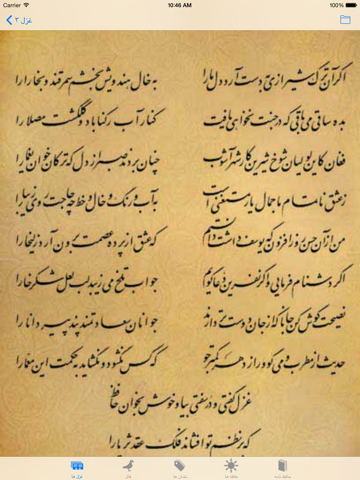 Carrier 10:46 AM 100%
غزل ۲
اگر آن ترک شیرازی به دست آرد دل ما را به خال هندویش بخشم سمرقند و بخارا را
بده ساقی می باقی که در جنت نخواهی یافت کنار آب رکناباد و گلگشت مصلا را
فغان کاین لولیان شوخ شیرین کار شهرآشوب چنان بردند صبر از دل که ترکان خوان یغما را
ز عشق ناتمام ما جمال یار مستغنی است به آب و رنگ و خال و خط چه حاجت روی زیبا را
من از آن حسن روزافزون که یوسف داشت دانستم که عشق از پرده عصمت برون آرد زلیخا را
اگر دشنام فرمایی و گر نفرین دعا گویم جواب تلخ می زیبد لب لعل شکرخا را
نصیحت گوش کن جانا که از جان دوست تر دارند جوانان سعادتمند پند پیر دانا را
حدیث از مطرب و می گو و راز دهر کمتر جو که کس نگشود و نگشاید به حکمت این معما را
غزل گفتی و در سفتی بیا و خوش بخوان حافظ
که بر نظم تو افشاند فلک عقد ثریا را
نامه علاقه ها نشان ها فال غزل ها